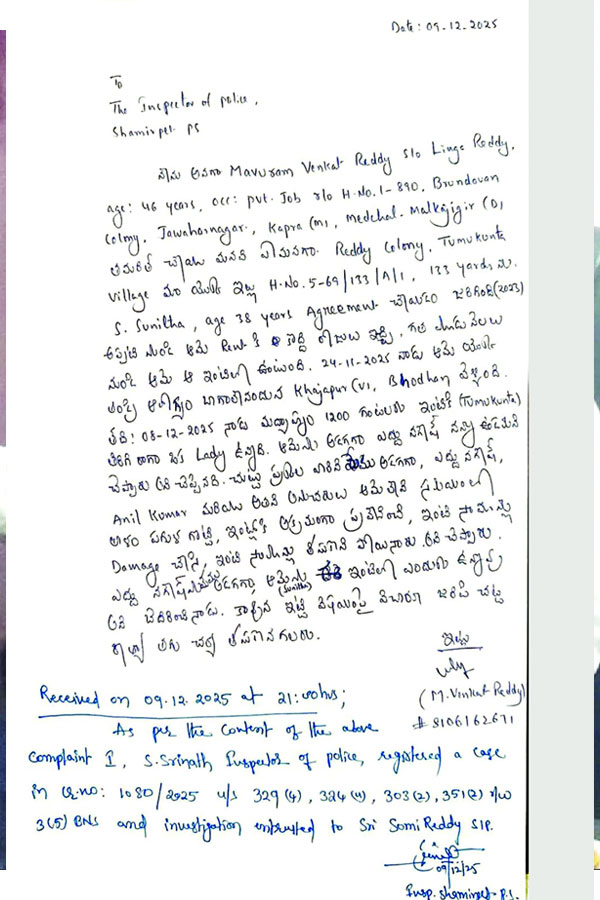 Date: 09-12-2025
To
The Inspector of police,
Shamirpet PS
నేను అనగా Mavuram Venkat Reddy S/o Linga Reddy,
age: 46 years, occ: pvt. Job r/o H.No.1-890, Brundavan
Colony, Jawaharnagar, Kapra (M), Medchal-Malkajigir (D),
Reddy Colony, Tumukunta
Village మా యొక్క ఇల్లు H.No. 5-69/133/A/1, 133 yards,
S. Sunitha, age 38 years Agreement చేయడం జరిగింది (2023)
అప్పటి నుండి ఆమె Rent కి ఇచ్చి. గత మూడు నెలలు
నుండి ఆమె ఆ ఇంటిలో ఉంటుంది. 24-11-2025 నాడు ఆమె యొక్క
తండ్రి ఆరోగ్యం బాగాలేనందున Khajapur (V), Bhodhan వెళ్ళింది.
తేది: 08-12-2025 నాడు మధ్యాహ్నం 1200 గంటలకు ఇంటికి (Tumukunta)
తిరిగి రాగా ఒక Lady ఉన్నది. ఆమెను అడగగా
చెప్పారు అని చెప్పినది. చుట్టు ప్రక్కల వారిని అడగగా,
Anil Kumar మరియు అతని అనుచరులు ఆమె లేని సమయంలో
తాళం పగుల గొట్టి, ఇంట్లోకి అక్రమంగా ప్రవేశించి, ఇంటి సామాన్లు
Damage చేసి, ఇంటి సామాన్లు తీసుకొని పోయినారు అని చెప్పారు.
అడగగా, ఆమెను (Sunitha) ఇంటిలో ఎందుకు ఉన్నావు
అని బెదిరించినాడు. కావున ఇట్టి విషయంపై విచారణ జరిపి చట్ట
రీత్యా తగు చర్య తీసుకొనగలరు.
ఇట్లు
(M. Venkat Reddy)
# 8106162671
Received on 09.12.2025 at 21:00hrs;
As per the content of the above
Complaint I, S. Srinath Inspector of police, registered a case
in Cr.no: 1080/2025 u/s 329(4), 324(4), 303(2), 351(2) r/w
3(5) BNS and investigation entrusted to Sri Somi Reddy SIP.
09/12/25
Insp. Shamirpet P.S.